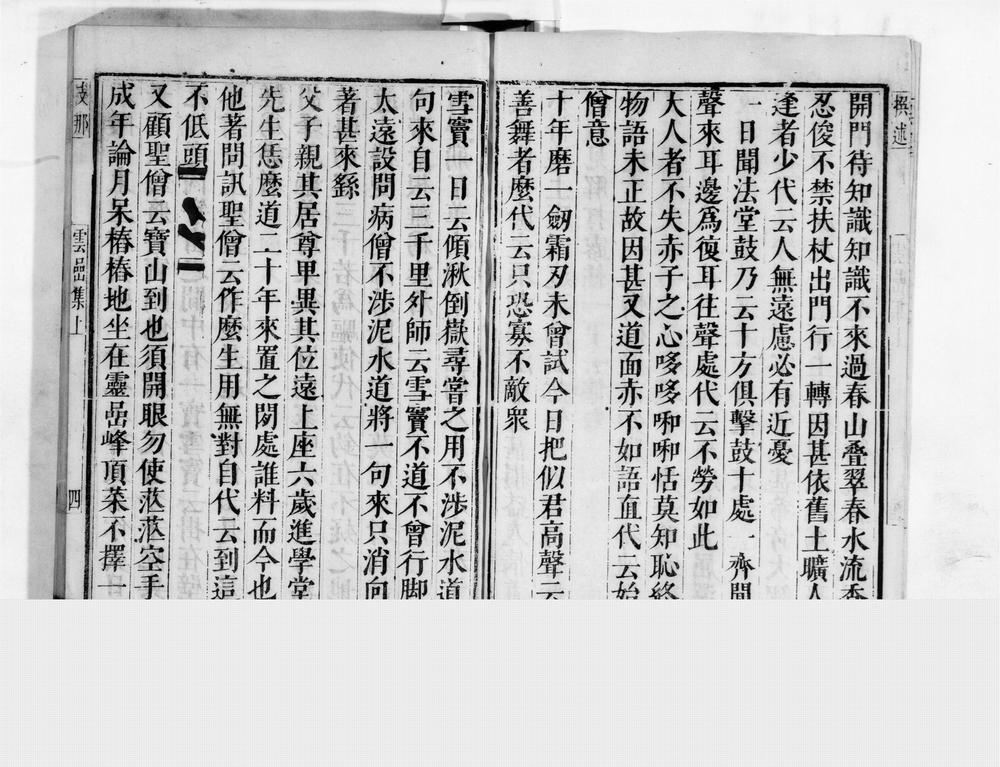 撰述
開門待知識知識不來過春山叠翠春水流杏
忍俊不禁扶杖出門行一轉因甚依舊土曠人
逢者少代云人無遠慮必有近憂
一日聞法堂鼓乃云十方俱擊鼓十處一齊聞
聲來耳邊爲復耳往聲處代云不勞如此
大人者不失赤子之心哆哆啝啝恬莫知恥終
物語未正故因甚又道面赤不如語直代云始
僧意
十年磨一劒霜刃未曾試今日把似君高聲云
善舞者麼代云只恐寡不敵衆
雪竇一日云傾湫倒嶽尋甞之用不涉泥水道
句來自云三千里外師云雪竇不道不曾行脚
太遠設問病僧不涉泥水道將一句來只消向
著甚來繇
父子親其居尊卑異其位遠上座六歲進學堂
先生恁麼道二十年來置之閑處誰料而今也
他著問訊聖僧云作麼生用無對自代云到這
不低頭
又顧聖僧云寶山到也須開眼勿使茫茫空手
成年論月呆樁樁地坐在靈嵒峰頂菜不擇
支那
雲嵒集上
四